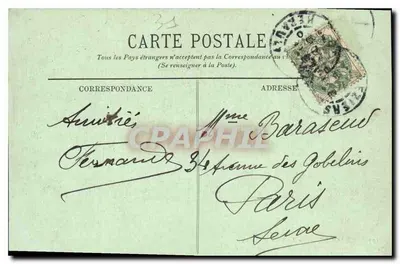 39
CARTE POSTALE
Tous les Pays étrangers n'acceptent pas la Correspondance au
(Se renseigner à la Poste).
CORRESPONDANCE
ADRESSE
Amitiés
Fernande
Mme Baraseud
34 Avenue des Gobelins
Paris
Seine
CPARAMA
HERAULT
BEZIERS